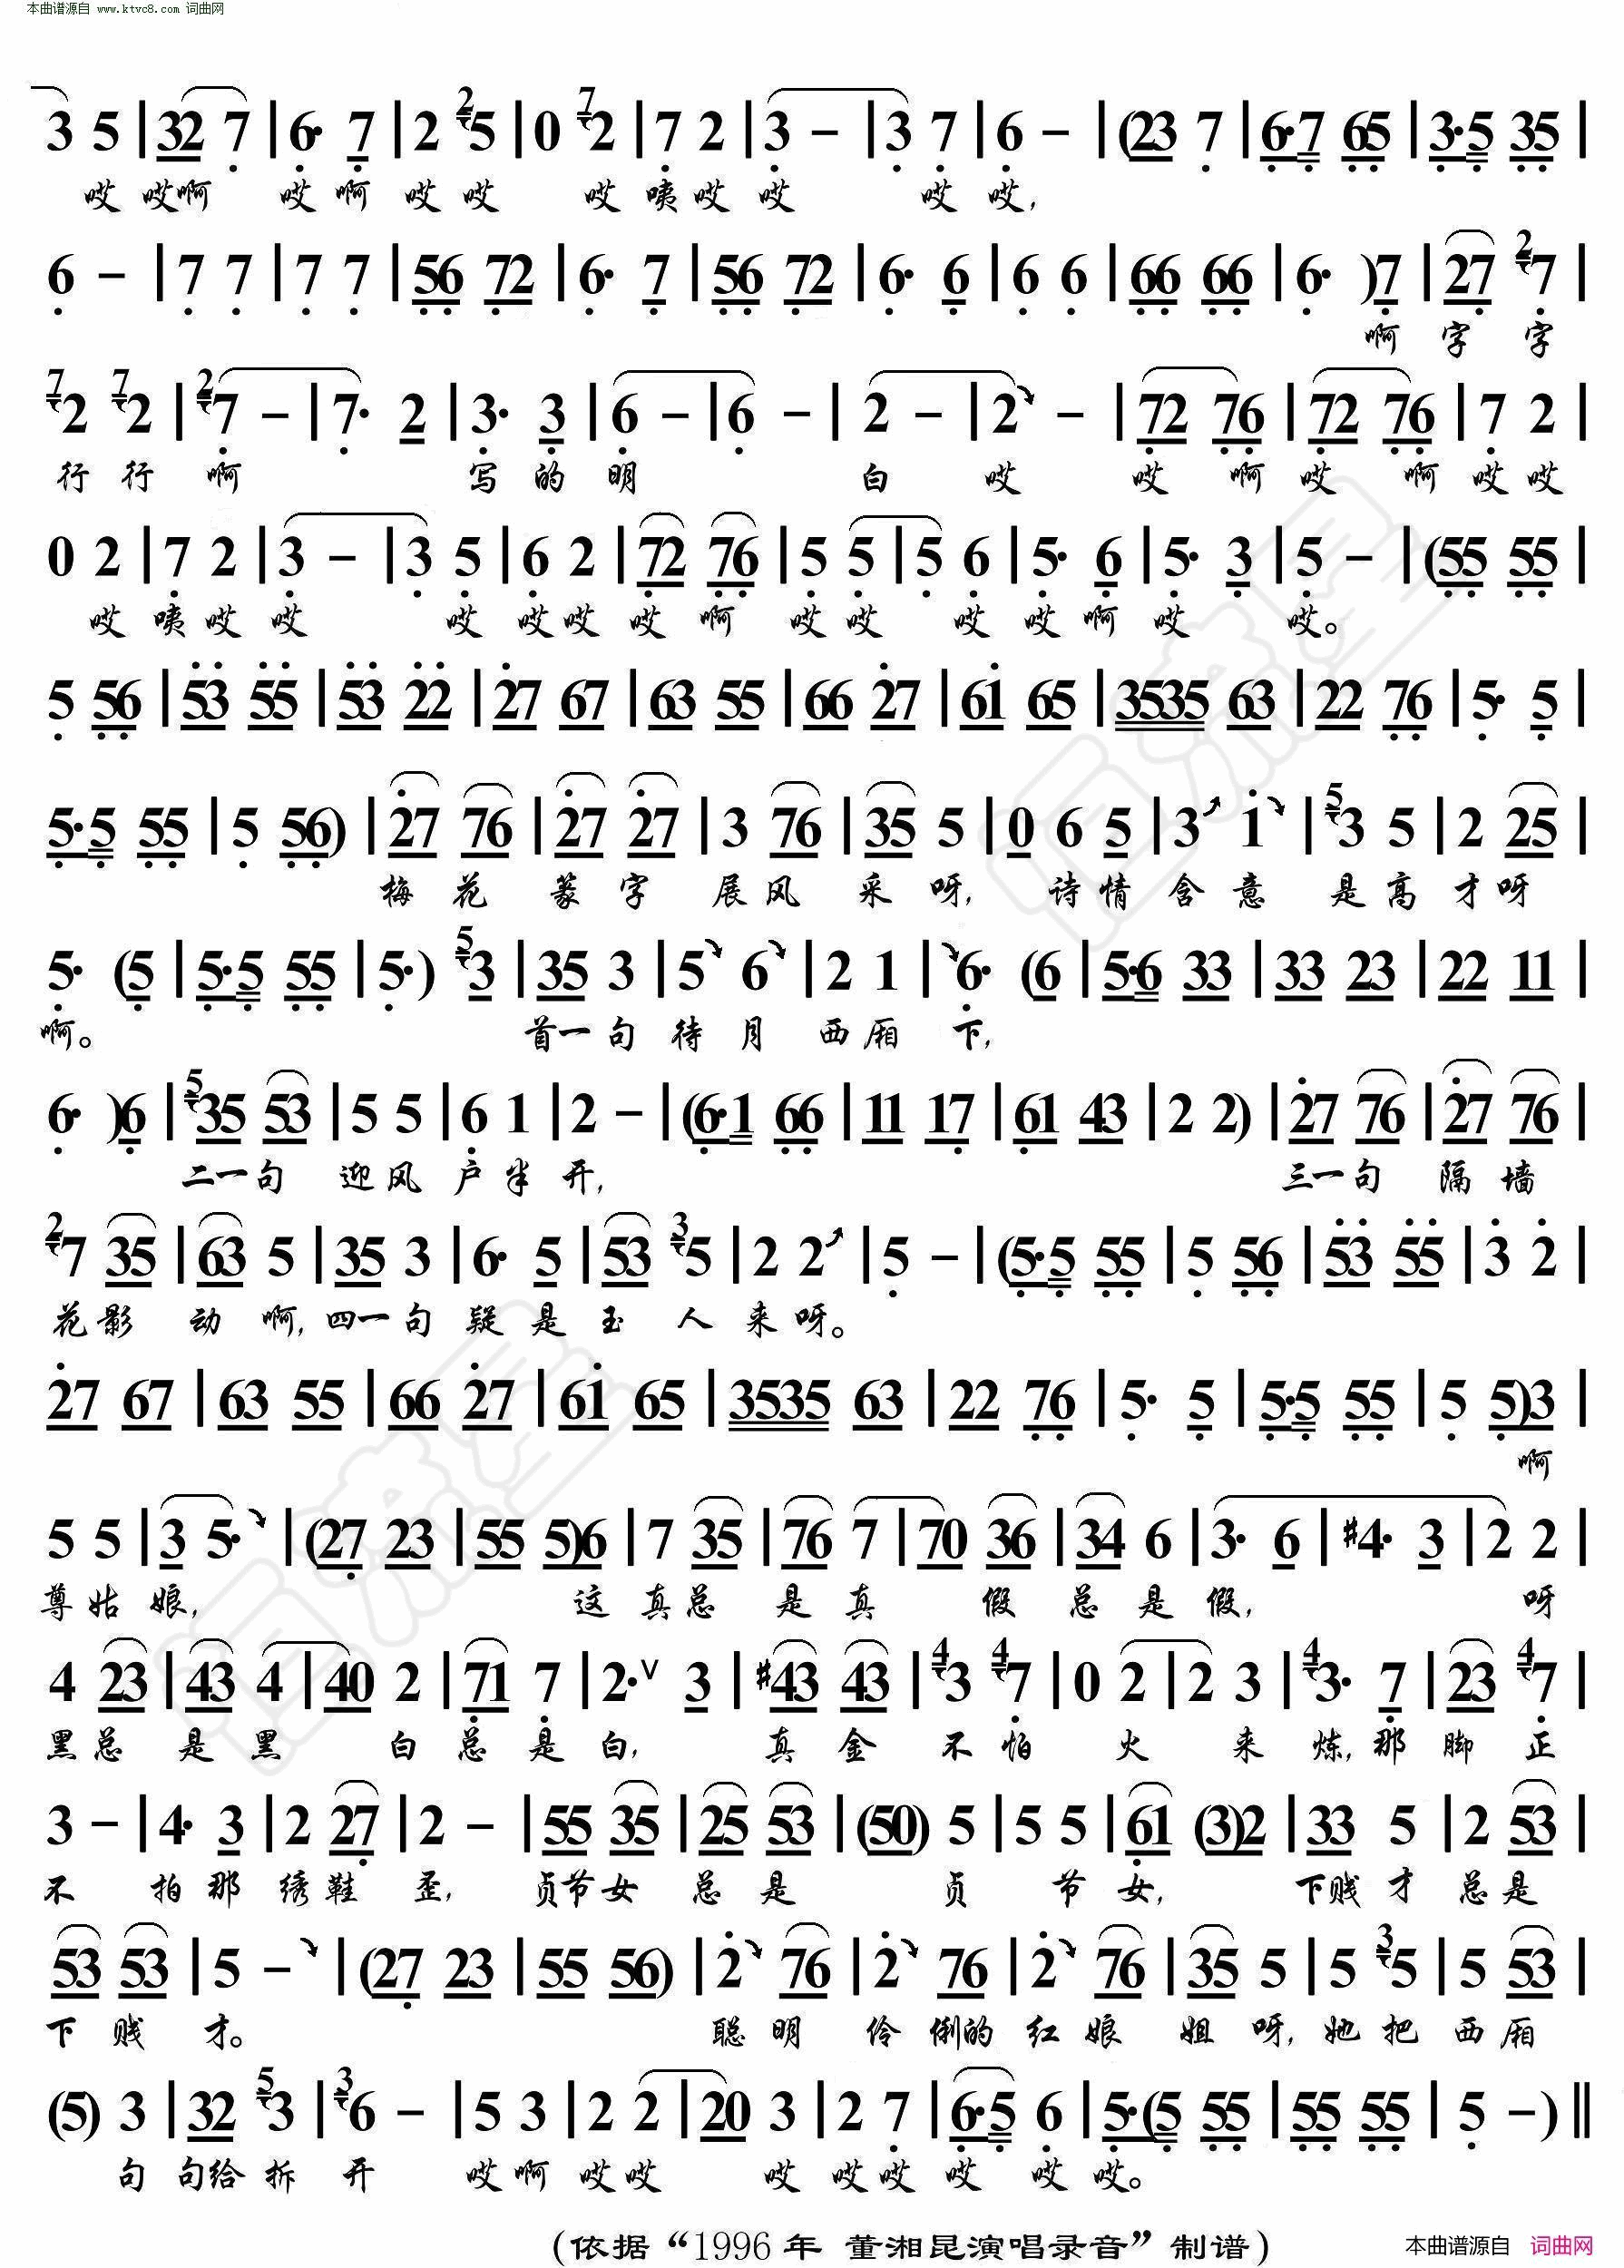 本曲谱源自 www.ktvc8.com 词曲网
3 5 | 32 7 | 6· 7 | 2 2 5 | 0 7 2 | 7 2 | 3 – | 3 7 | 6 – | (23 7 | 6·7 65 | 3·5 35 |
哎 哎啊 哎 啊 哎 哎 哎 咦 哎 哎 哎 哎,
6 – | 7 7 | 7 7 | 56 72 | 6· 7 | 56 72 | 6· 6 | 6 6 | 66 66 | 6· )7 | 27 2 7 |
啊 字 字
7 2 7 2 | 2 7 – | 7· 2 | 3· 3 | 6 – | 6 – | 2 – | 2 – | 72 76 | 72 76 | 7 2 |
行 行 啊 写 的 明 白 哎 哎 啊 哎 啊 哎 哎
0 2 | 7 2 | 3 – | 3 5 | 6 2 | 72 76 | 5 5 | 5 6 | 5· 6 | 5· 3 | 5 – | (55 55 |
哎 咦 哎 哎 哎 哎 哎 哎 啊 哎 哎 哎 哎 啊 哎 哎。
5 56 | 53 55 | 53 22 | 27 67 | 63 55 | 66 27 | 61 65 | 3535 63 | 22 76 | 5· 5 |
5·5 55 | 5 56) | 27 76 | 27 27 | 3 76 | 35 5 | 0 6 5 | 3 1 | 5 3 5 | 2 25 |
梅 花 篆 字 展 风 采 呀, 诗 情 含 意 是 高 才 呀
5· (5 | 5·5 55 | 5·) 5 3 | 35 3 | 5 6 | 2 1 | 6· (6 | 5·6 33 | 33 23 | 22 11 |
啊。 首一 句 待 月 西 厢 下,
6· )6 | 5 35 53 | 5 5 | 6 1 | 2 – | (6·1 66 | 11 17 | 61 43 | 2 2) | 27 76 | 27 76 |
二一 句 迎 风 户 半 开, 三一 句 隔 墙
2 7 35 | 63 5 | 35 3 | 6· 5 | 53 3 5 | 2 2 | 5 – | (5·5 55 | 5 56 | 53 55 | 3 2 |
花 影 动 啊, 四一 句 疑 是 玉 人 来 呀。
27 67 | 63 55 | 66 27 | 61 65 | 3535 63 | 22 76 | 5· 5 | 5·5 55 | 5 5)3 |
啊
5 5 | 3 5· | (27 23 | 55 5)6 | 7 35 | 76 7 | 70 36 | 34 6 | 3· 6 | #4· 3 | 2 2 |
尊 姑 娘, 这 真 总 是 真 假 总 是 假, 呀
4 23 | 43 4 | 40 2 | 71 7 | 2· ∨ 3 | #43 43 | 4 3 4 7 | 0 2 | 2 3 | 4 3· 7 | 23 4 7 |
黑 总 是 黑 白 总 是 白, 真 金 不 怕 火 来 炼, 那 脚 正
3 – | 4· 3 | 2 27 | 2 – | 55 35 | 25 53 | (50) 5 | 5 5 | 61 (3)2 | 33 5 | 2 53 |
不 拍 那 绣 鞋 歪, 贞节 女 总 是 贞 节 女, 下贱 才 总 是
53 53 | 5 – | (27 23 | 55 56) | 2 76 | 2 76 | 2 76 | 35 5 | 5 3 5 | 5 53 |
下 贱 才。 聪 明 伶 俐的 红 娘 姐 呀, 她 把 西 厢
(5) 3 | 32 5 3 | 3 6 – | 5 3 | 2 2 | 20 3 | 2 7 | 6·5 6 | 5·(5 55 | 55 55 | 5 –) ‖
句 句给 拆 开 哎 啊 哎 哎 哎 哎 哎 哎 哎 哎。
(依据“1996年 董湘昆演唱录音”制谱)
本曲谱源自 词曲网